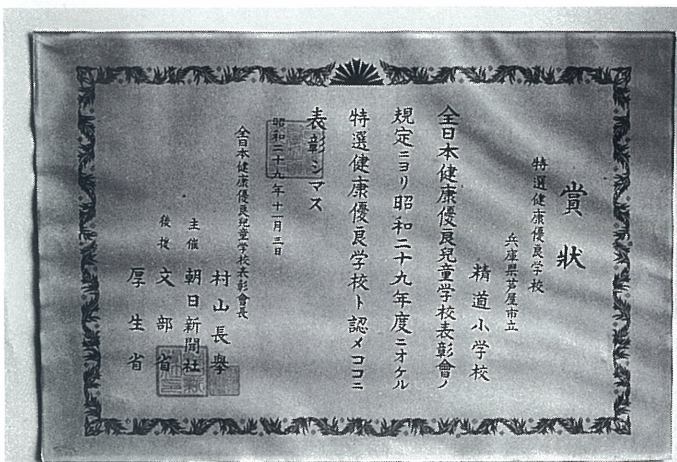 賞状
特選健康優良学校
兵庫県芦屋市立
精道小学校
全日本健康優良兒童学校表彰會ノ
規定ニヨリ昭和二十九年度ニオケル
特選健康優良学校ト認メココニ
表彰シマス
昭和二十九年十一月三日
全日本健康優良兒童学校表彰會長
村山長擧
主催 朝日新聞社
後援 文部省
厚生省